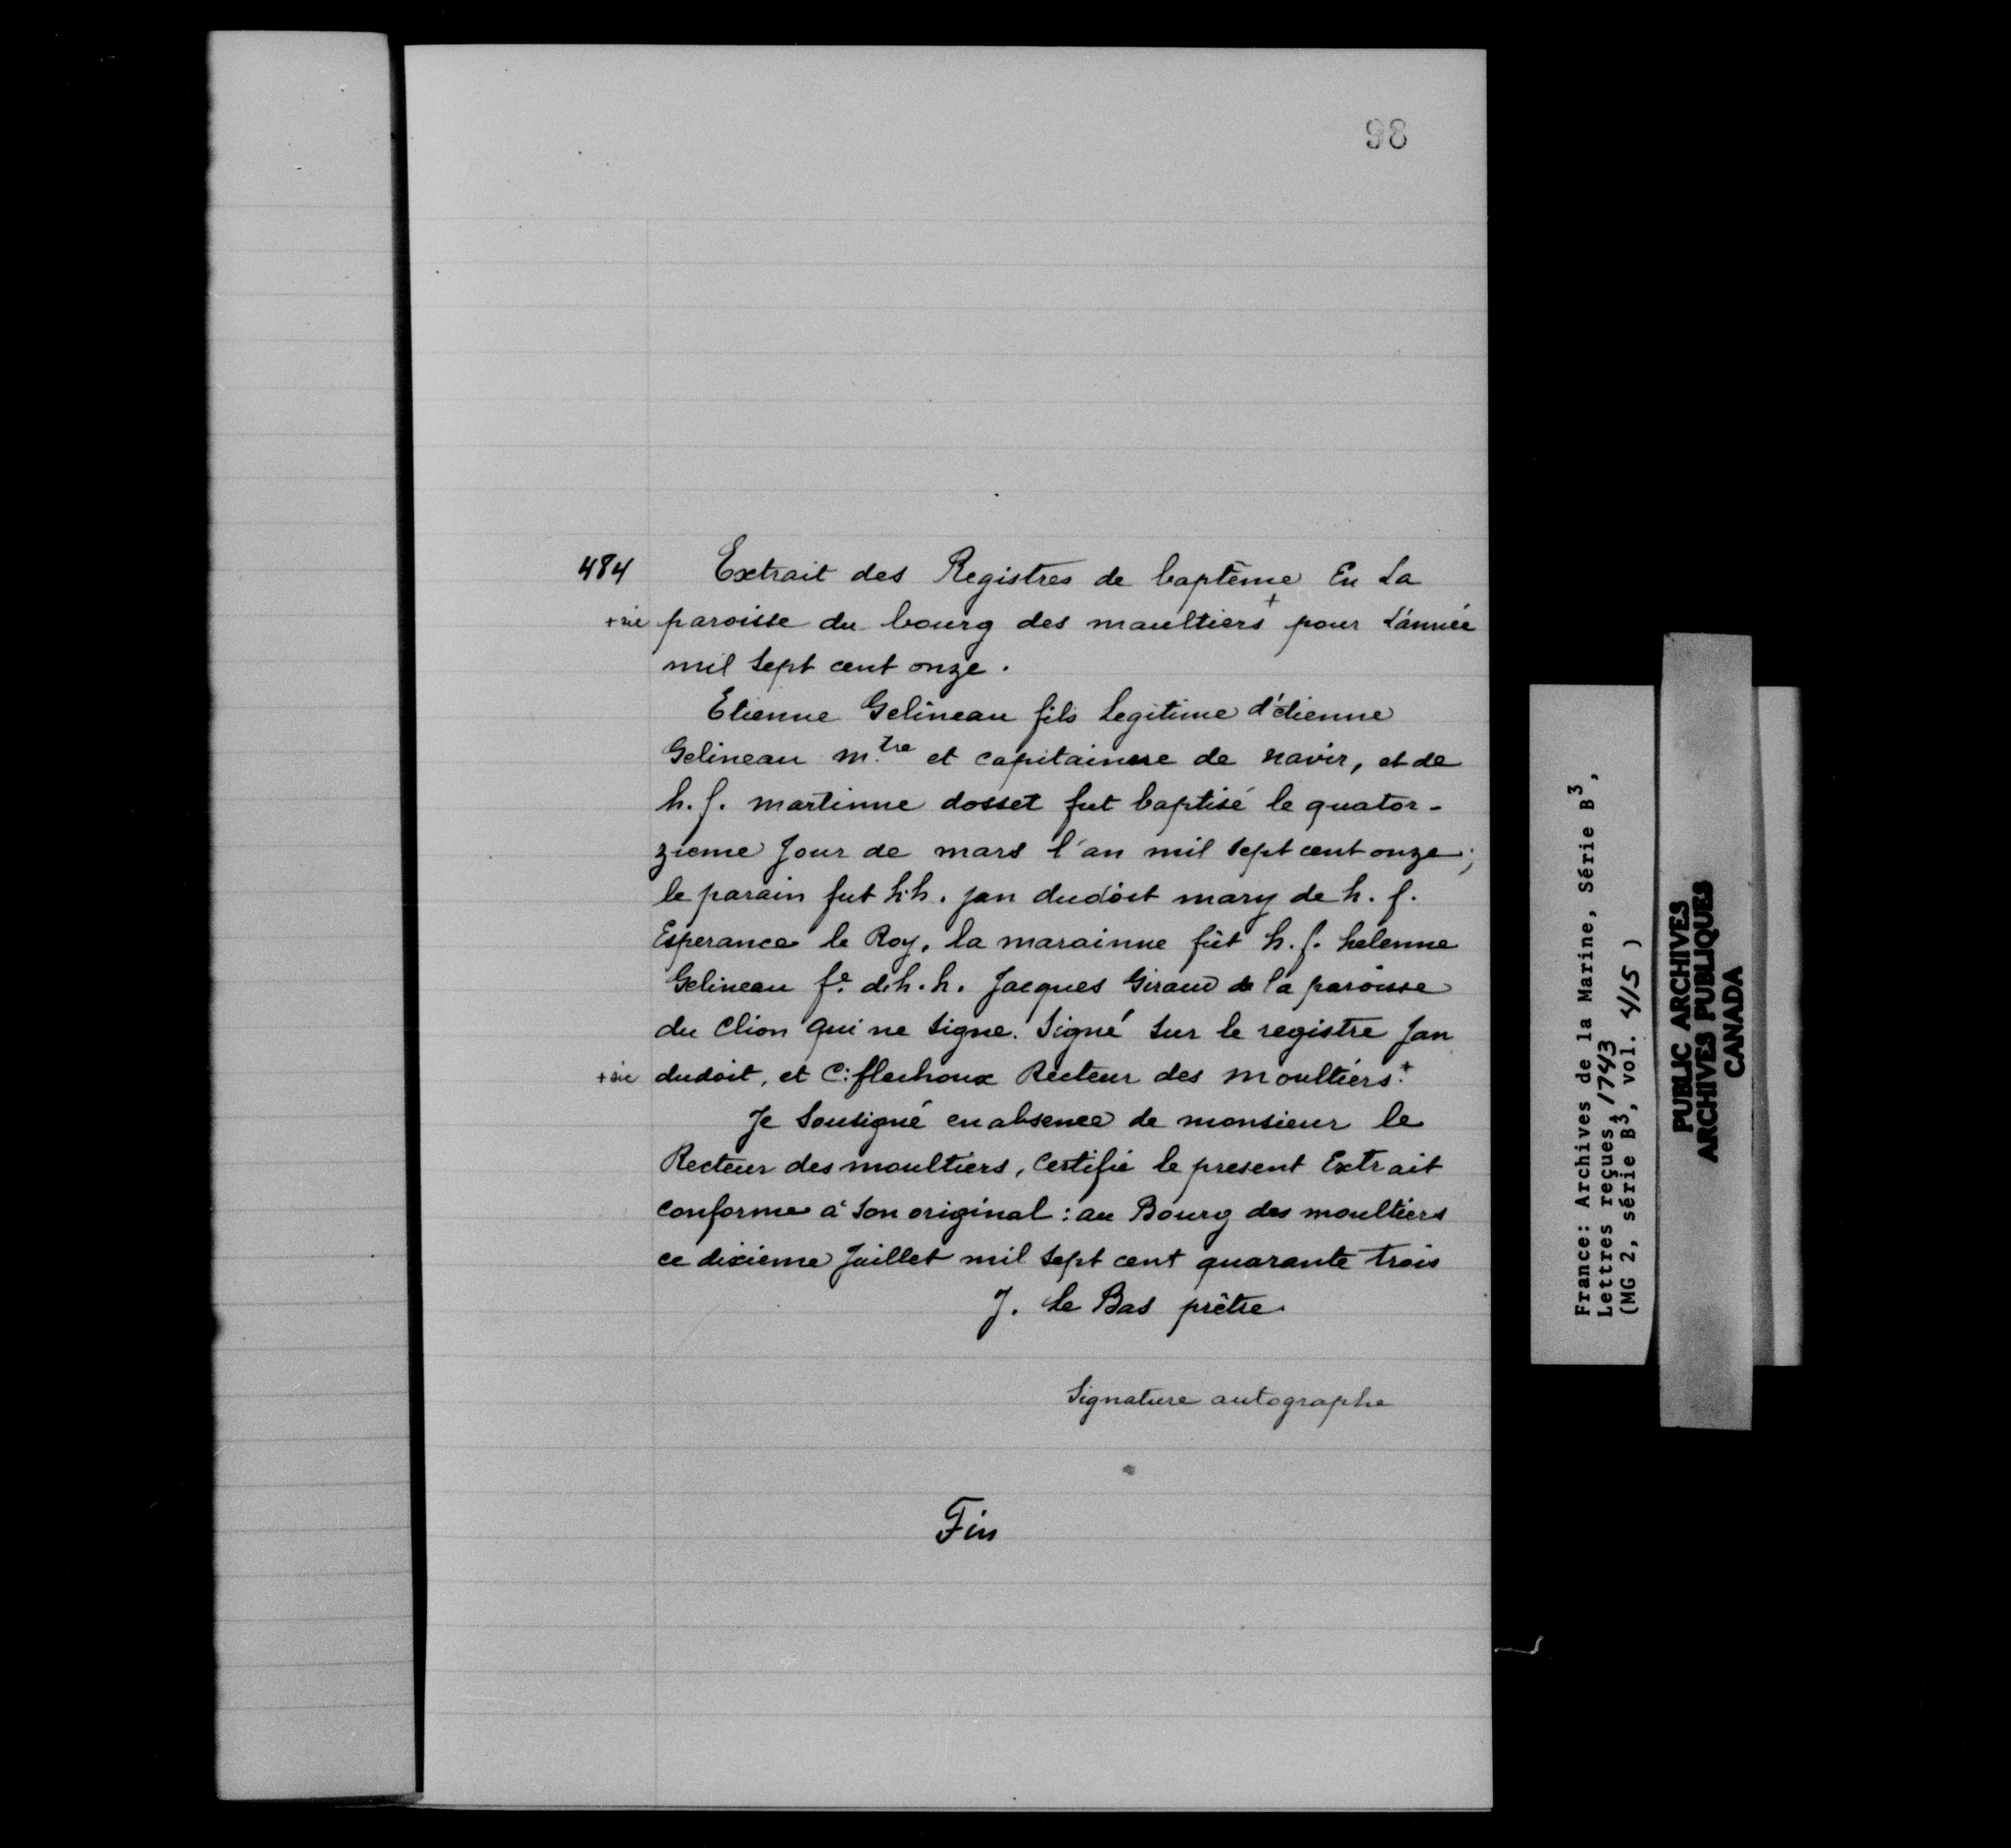 98
484 Extrait des Registres de baptême En La
+sic paroisse du bourg des maultiers + pour L'année
mil Sept cent onze.
Etienne Gelineau fils Legitime d'étienne
Gelineau m.tre et capitainne de navir, et de
h. f. martinne dosset fut baptisé le quator-
zieme Jour de mars l'an mil Sept cent onze;
le parain fut h.h. jan dudoit mary de h. f.
Esperance le Roy, la marainne fût h. f. helenne
Gelineau fe. d.h.h. Jacques Giraud de la paroisse
du Clion qui ne Signe. Signé Sur le registre Jan
+sic dudoit, et C: flechoux Recteur des moultiers.+
Je Sousigné en absence de monsieur le
Recteur des moultiers, Certifie le present Extrait
conforme à Son original: au Bourg des moultiers
ce dixieme Juillet mil Sept cent quarante trois
J. Le Bas prêtre.
Signature autographe
Fin
France: Archives de la Marine, Série B3,
Lettres reçues, 1743
(MG 2, série B3, vol. 415 )
PUBLIC ARCHIVES
ARCHIVES PUBLIQUES
CANADA